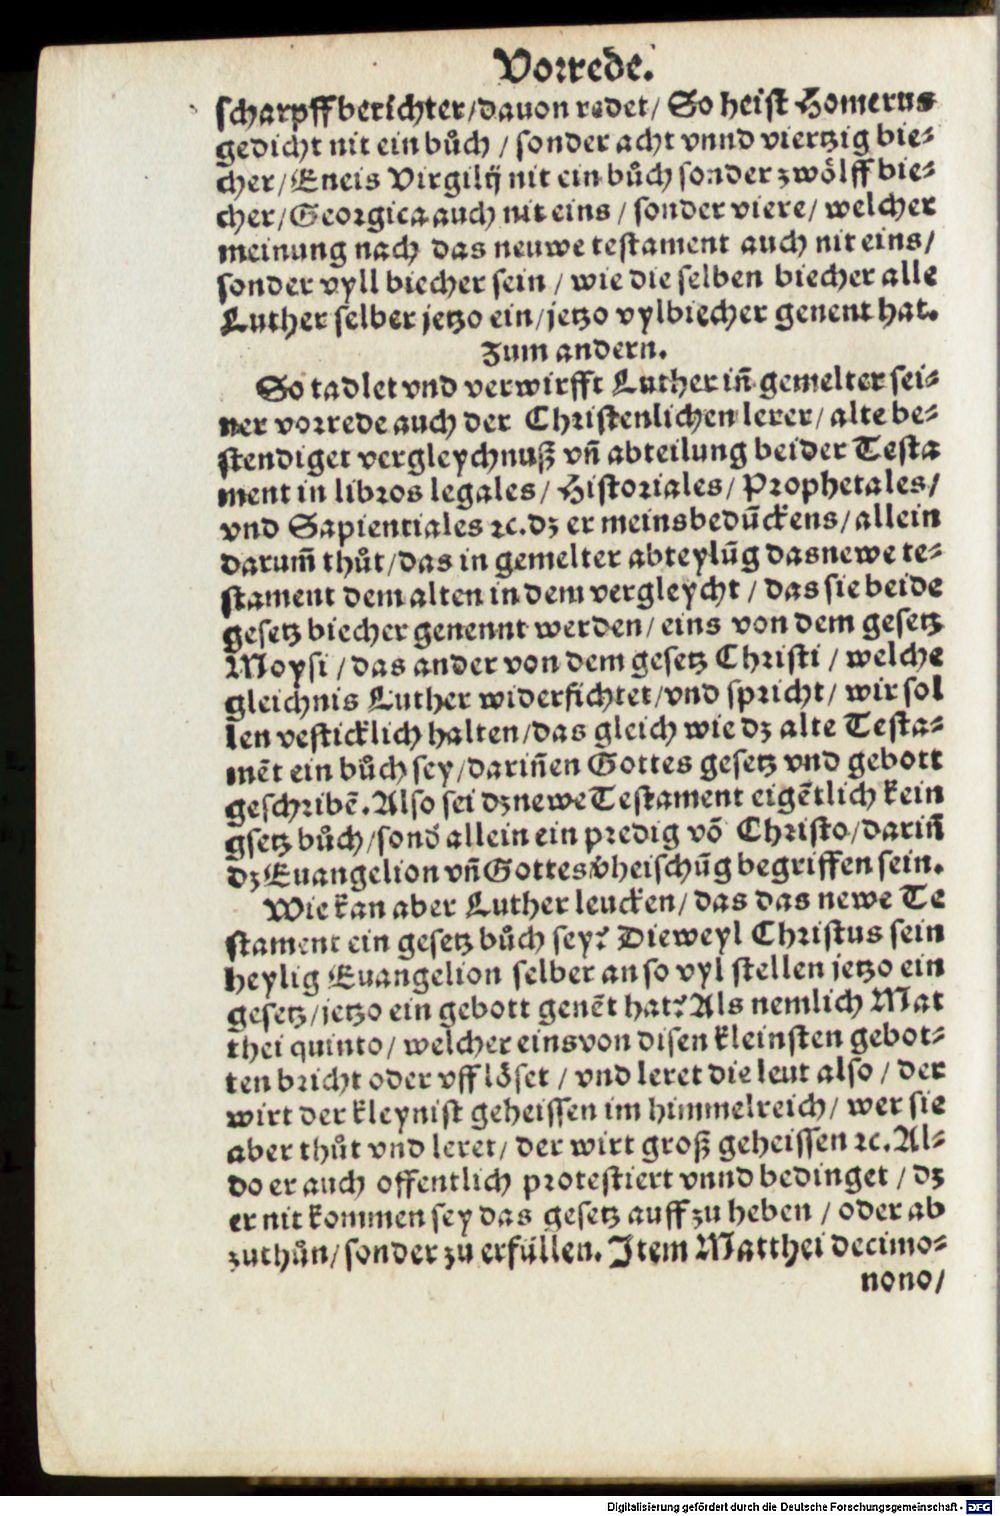 Vorrede.
scharpff berichter/dauon redet/ So heist Homerus
gedicht nit ein bůch / sonder acht vnnd viertzig bie⸗
cher/Eneis Virgilij nit ein bůch sonder zwölff bie⸗
cher/Georgica auch nit eins / sonder viere/ welcher
meinung nach das neuwe testament auch nit eins/
sonder vyll biecher sein / wie die selben biecher alle
Luther selber jetzo ein/jetzo vylbiecher genent hat.
Zum andern.
So tadlet vnd verwirfft Luther iñ gemelter sei⸗
ner vorrede auch der Christenlichen lerer/ alte be⸗
stendiget vergleychnuß vñ abteilung beider Testa
ment in libros legales/ Historiales/ Prophetales/
vnd Sapientiales ꝛc.dz er meinsbedũckens/ allein
darum̃ thůt/das in gemelter abteylũg dasnewe te⸗
stament dem alten in dem vergleycht / das sie beide
gesetz biecher genennt werden/ eins von dem gesetz
Moysi /das ander von dem gesetz Christi / welche
gleichnis Luther widerfichtet/vnd spricht/ wir sol
len vesticklich halten/das gleich wie dz alte Testa⸗
mẽt ein bůch sey/dariñen Gottes gesetz vnd gebott
geschribẽ.Also sei dznewe Testament eigẽtlich kein
gsetz bůch/sond̕ allein ein predig võ Christo/dariñ
dz Euangelion vñ Gottes v̕heischũg begriffen sein.
Wie kan aber Luther leucken/ das das newe Te
stament ein gesetz bůch sey? Dieweyl Christus sein
heylig Euangelion selber an so vyl stellen jetzo ein
gesetz/jetzo ein gebott genẽt hat? Als nemlich Mat
thei quinto/ welcher einsvon disen kleinsten gebot⸗
ten bricht oder vfflöset / vnd leret die leut also / der
wirt der kleynist geheissen im himmelreich/ wer sie
aber thůt vnd leret/ der wirt groß geheissen ꝛc. Al⸗
do er auch offentlich protestiert vnnd bedinget / dz
er nit kommen sey das gesetz auff zu heben / oder ab
zuthůn/sonder zu erfüllen. Item Matthei decimo⸗
nono/
Digitalisierung gefördert durch die Deutsche Forschungsgemeinschaft - DFG